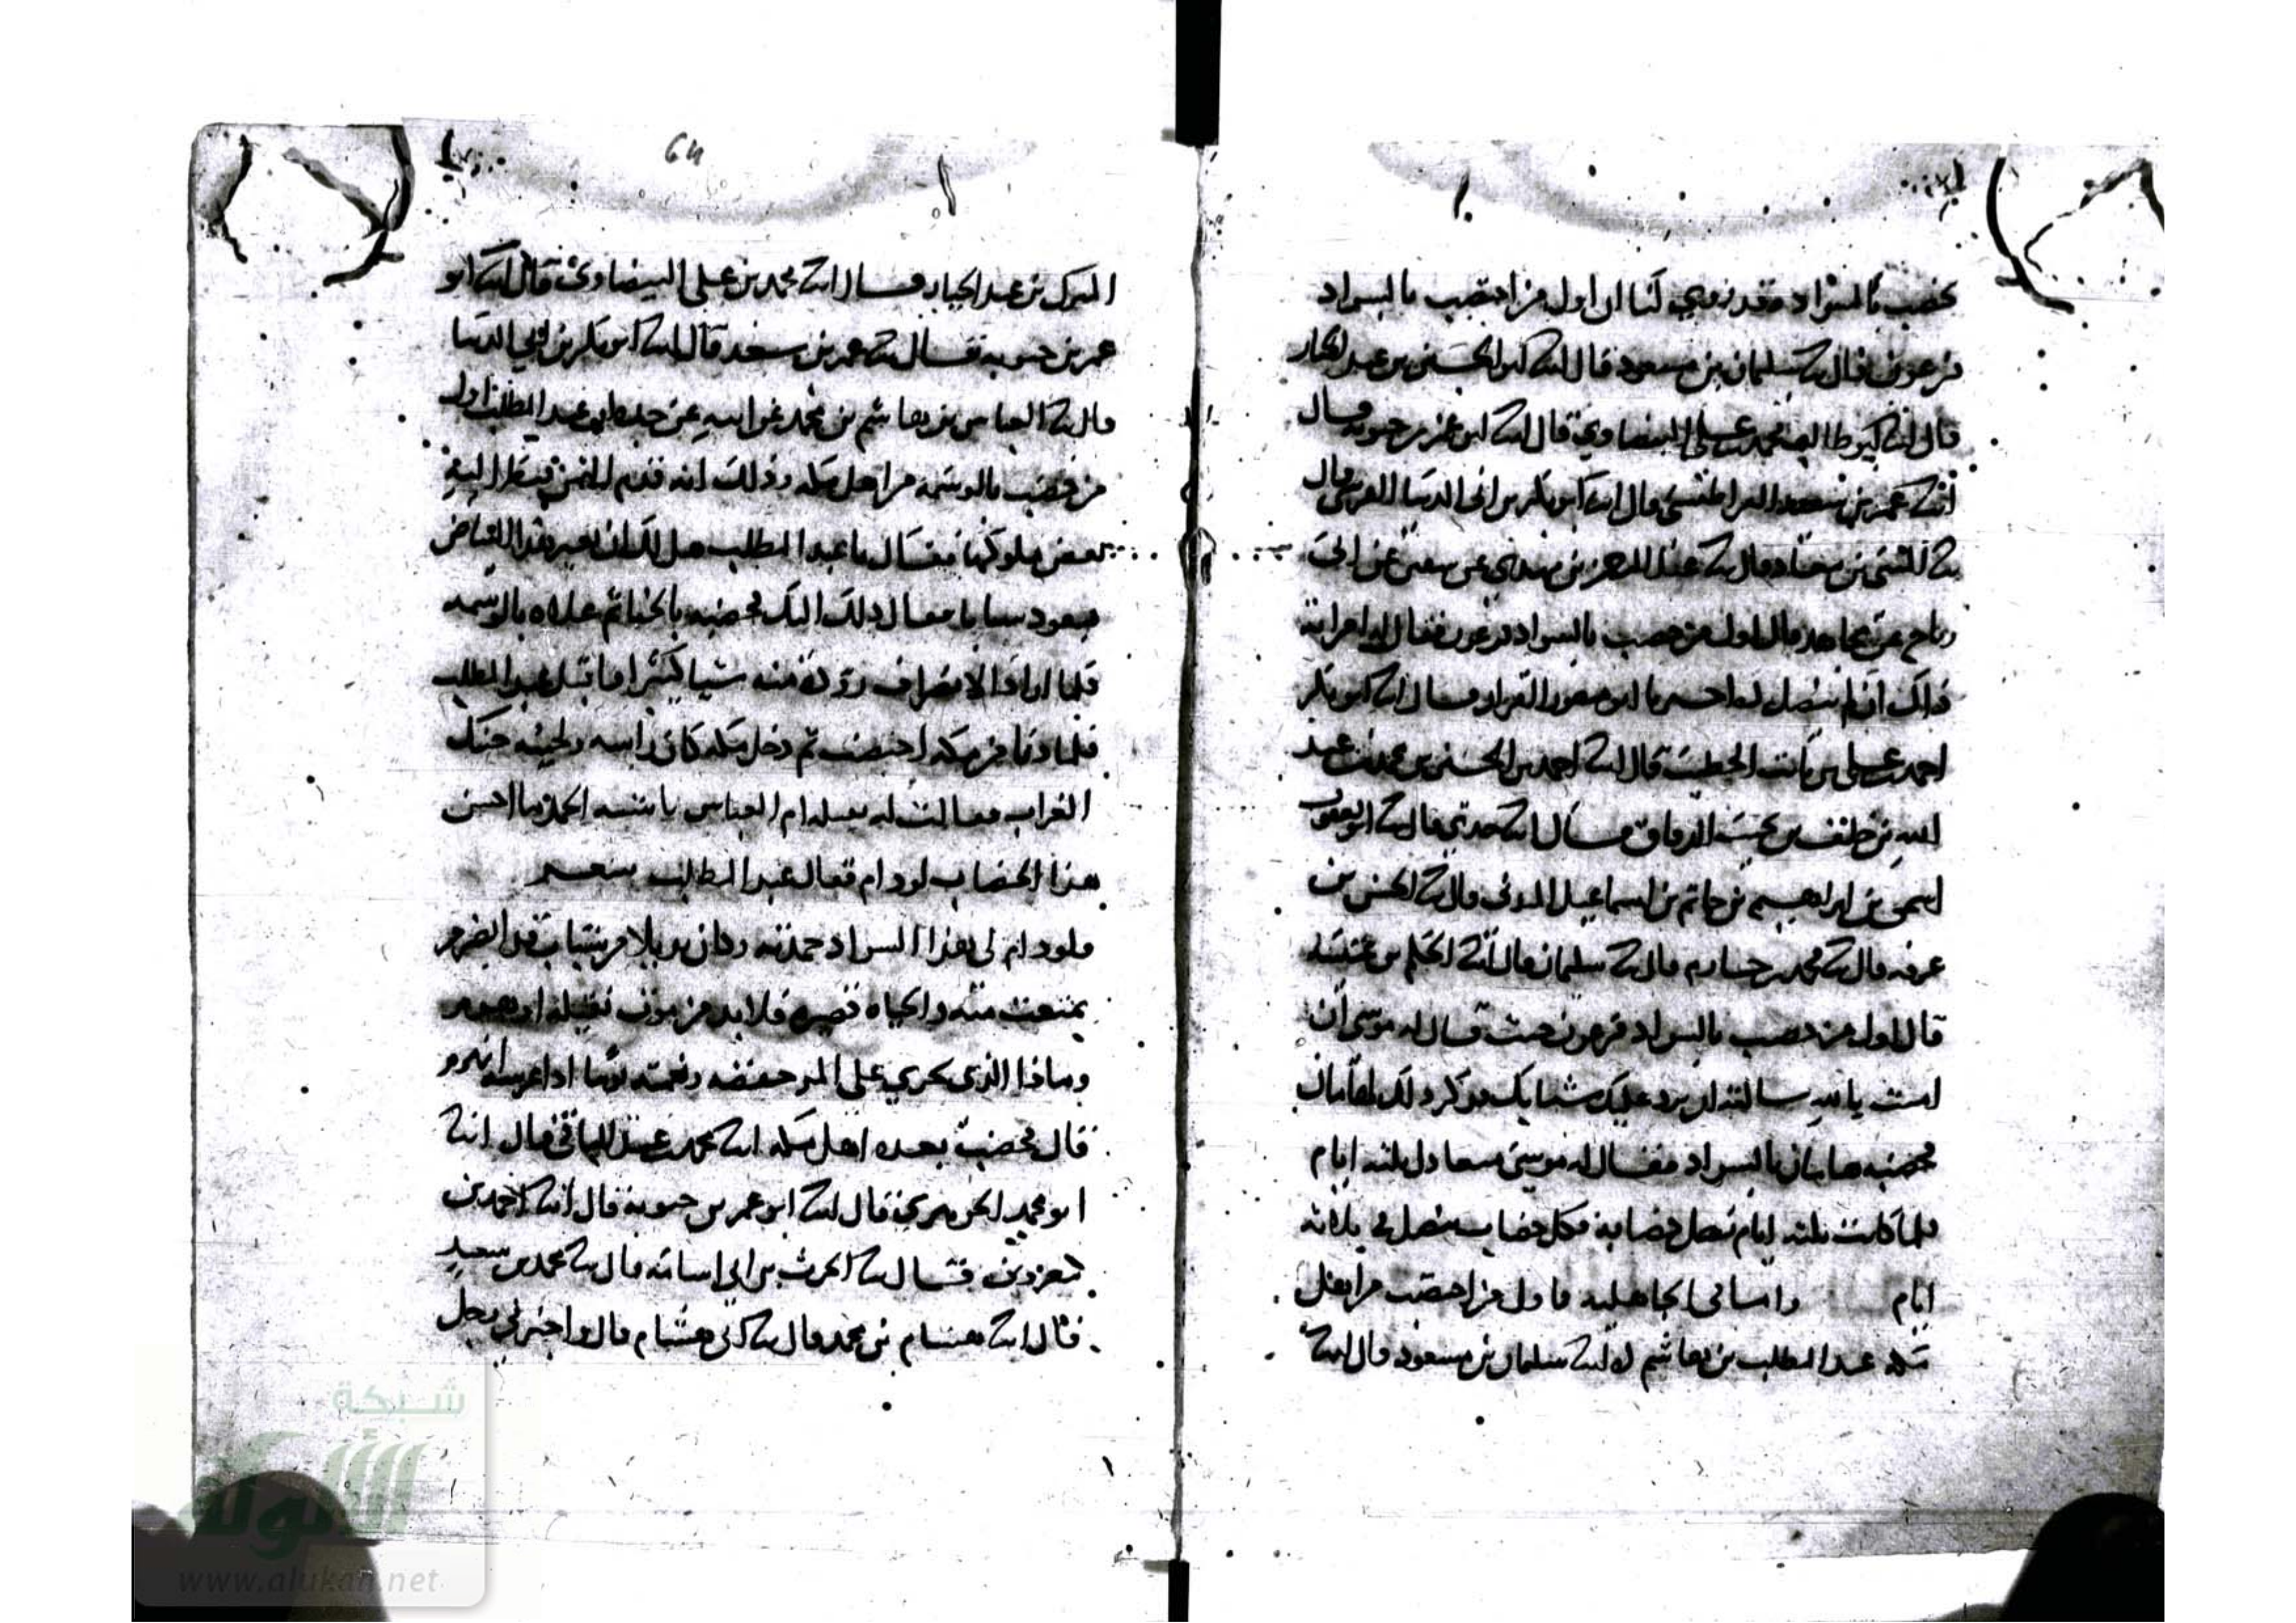 يخضب بالسواد فقد روي لنا ان اول من اختضب بالسواد
فرعون فقال سا سليمان بن مسعود قال انا ابو الحسين بن عبد الجبار
قال انا ابو طالب محمد بن علي البيضاوي قال انا ابو عمر بن حيويه قال
انا عمر بن سعد القراطيسي قال انا ابو بكر بن ابي الدنيا القرشي قال
سا المثنى بن معاذ قال سا عبد العزيز بن عن عن ابي
رباح عن مجاهد قال اول من خضب بالسواد فرعون فقال له
ذاك ان لم ينصل اخبرنا ابو منصور القزاز قال انا ابو بكر
احمد بن علي بن ثابت الخطيب قال انا احمد بن الحسين بن محمد بن عبد
الله بن خلف بن بخيت الدقاق قال انا جدي قال سا ابو يعقوب
اسحق بن ابراهيم بن حاتم بن اسماعيل المدني قال سا الحسن بن
عرفه قال سا محمد بن قال سا سليمان قال انا الحكم بن عتيبه
قال اول من خضب بالسواد فرعون حيث قال له موسى ان
امنت بالله سالته ان يرد عليك شبابك فذكر ذلك لهامان
فخضبه هامان بالسواد فقال له موسى ميعادك ثلثه ايام
فلما كانت ثلثه ايام نصل خضابه فكل خضاب ينصل في ثلاثه
ايام واما في الجاهليه فاول من اختضب من اهل
مكه عبد المطلب بن هاشم انا سلمان بن مسعود قال انا
64
المبرك بن عبد الجبار قال انا محمد بن علي البيضاوي قال انا ابو
عمر بن حيويه قال سا عمر بن سعد قال انا ابو بكر بن ابي الدنيا
قال سا العباس بن هاشم بن محمد عن ابيه عن جده عبد المطلب اول
من خضب بالوسمه من اهل مكه وذلك انه قدم اليمن فنظر اليه
بعض ملوكها فقال يا عبد المطلب هل لك ان تغير هذا البياض
فيعود شبابا فقال ذلك اليك فخضبه بالحنا ثم علاه بالوسمه
فلما اراد الانصراف زوده منه شيا كثيرا قبل عبد المطلب
فلما دنا من مكه اختضب ثم دخل مكه كان راسه ولحيته حنك
الغراب فقالت له نتيله ام العباس يا شيبه الحمد ما احسن
هذا الخضاب لو دام فقال عبد المطلب
فلو دام لي هذا السواد حمدته وكان بديلا من شباب قد انصرم
تمتعت منه والحياه قصيره فلا بد من موت نتيله او هرم
وماذا الذي يجري على المر خفضه ونعمته يوما اذا عرشه انهدم
قال فخضب بعده اهل مكه انا محمد بن عبد الباقي قال انا
ابو محمد الجوهري قال انا ابو عمر بن حيويه قال انا احمد بن
معروف قال سا الحرث بن ابي اسامه قال سا محمد بن سعيد
قال انا هشام بن محمد قال سا ابي هشام قال واخبرني رجل
شبكة
الألوكة
www.alukah.net